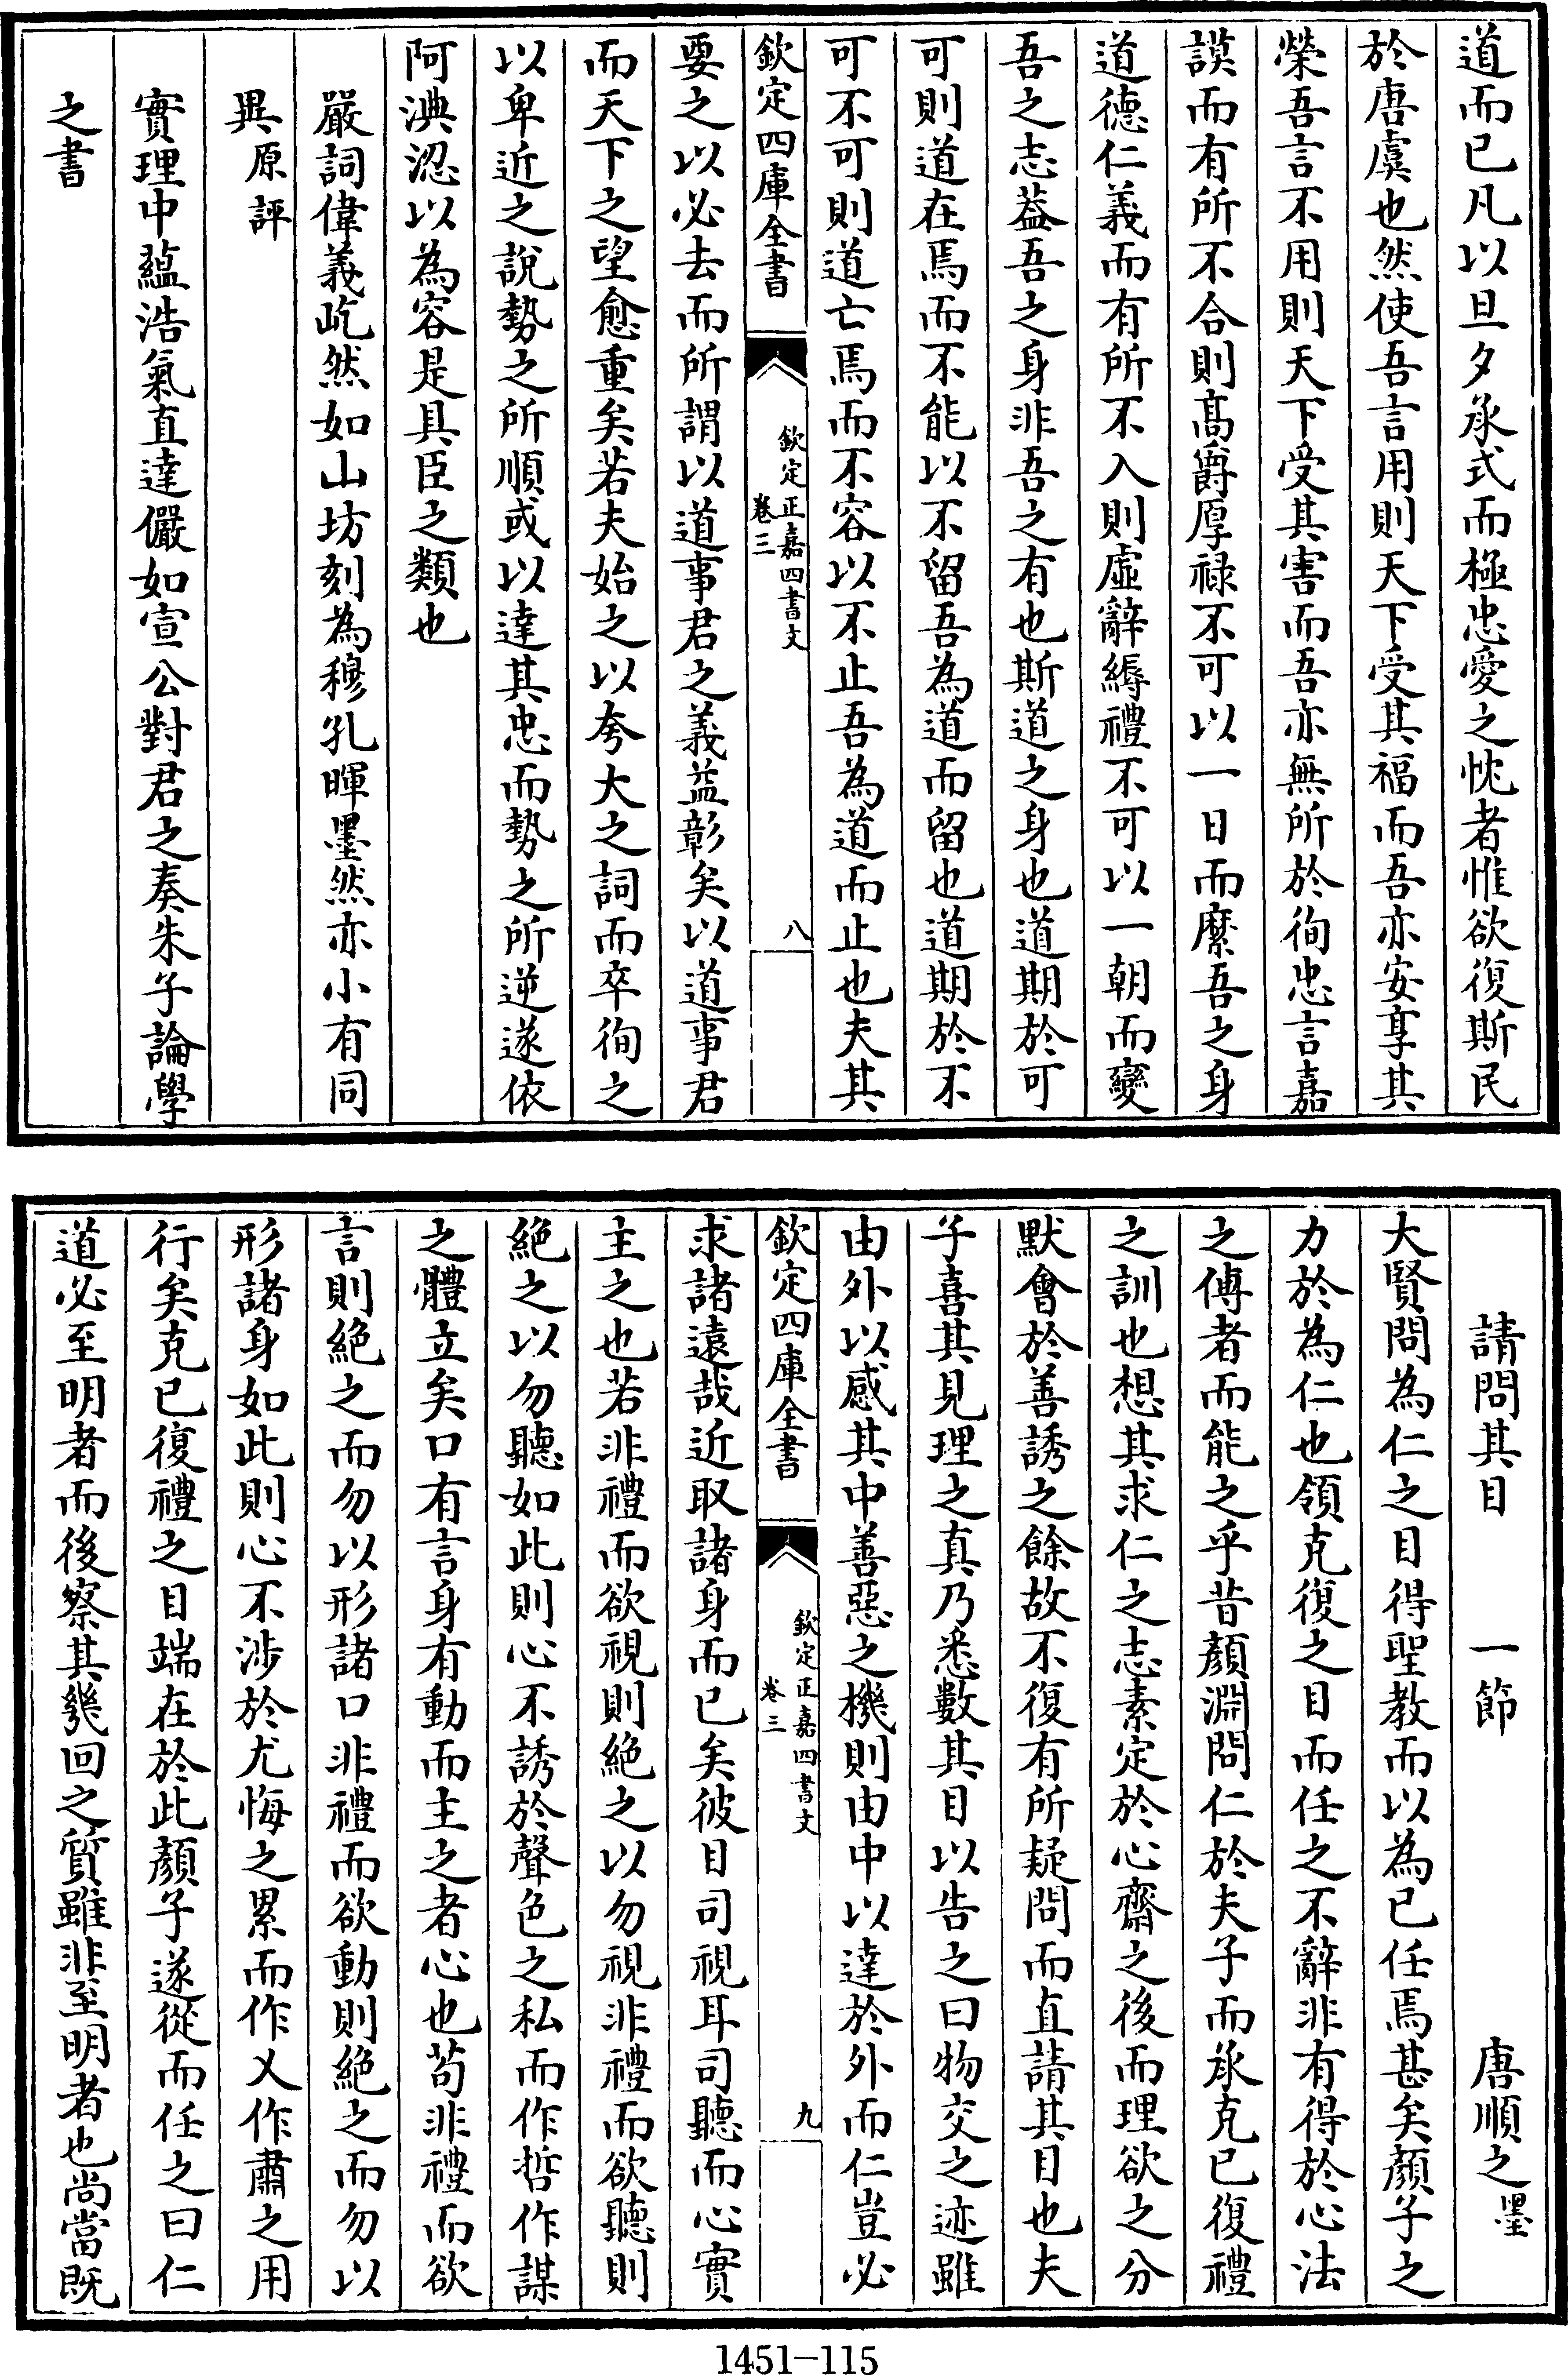 道而已凡以旦夕承式而極忠愛之忱者惟欲復斯民
於唐虞也然使吾言用則天下受其福而吾亦安享其
榮吾言不用則天下受其害而吾亦無所於徇忠言嘉
謨而有所不合則髙爵厚禄不可以一日而縻吾之身
道德仁義而有所不入則虛辭縟禮不可以一朝而變
吾之志葢吾之身非吾之有也斯道之身也道期於可
可則道在焉而不能以不留吾為道而留也道期於不
可不可則道亡焉而不容以不止吾為道而止也夫其
欽定四庫全書
欽定正嘉四書文
卷三
八
要之以必去而所謂以道事君之義益彰矣以道事君
而天下之望愈重矣若夫始之以夸大之詞而卒徇之
以卑近之說勢之所順或以達其忠而勢之所逆遂依
阿淟涊以為容是具臣之類也
嚴詞偉義屹然如山坊刻為穆孔暉墨然亦小有同
異原評
實理中藴浩氣直達儼如宣公對君之奏朱子論學
之書
請問其目 一節 唐順之墨
大賢問為仁之目得聖教而以為已任焉甚矣顏子之
力於為仁也領克復之目而任之不辭非有得於心法
之傳者而能之乎昔顏淵問仁於夫子而承克已復禮
之訓也想其求仁之志素定於心齋之後而理欲之分
默會於善誘之餘故不復有所疑問而直請其目也夫
子喜其見理之真乃悉數其目以告之曰物交之迹雖
由外以感其中善惡之機則由中以達於外而仁豈必
欽定四庫全書
欽定正嘉四書文
卷三
九
求諸遠哉近取諸身而已矣彼目司視耳司聽而心實
主之也若非禮而欲視則絶之以勿視非禮而欲聽則
絶之以勿聽如此則心不誘於聲色之私而作哲作謀
之體立矣口有言身有動而主之者心也苟非禮而欲
言則絶之而勿以形諸口非禮而欲動則絶之而勿以
形諸身如此則心不涉於尤悔之累而作乂作肅之用
行矣克已復禮之目端在於此顏子遂從而任之曰仁
道必至明者而後察其幾回之質雖非至明者也尚當既
1451-115